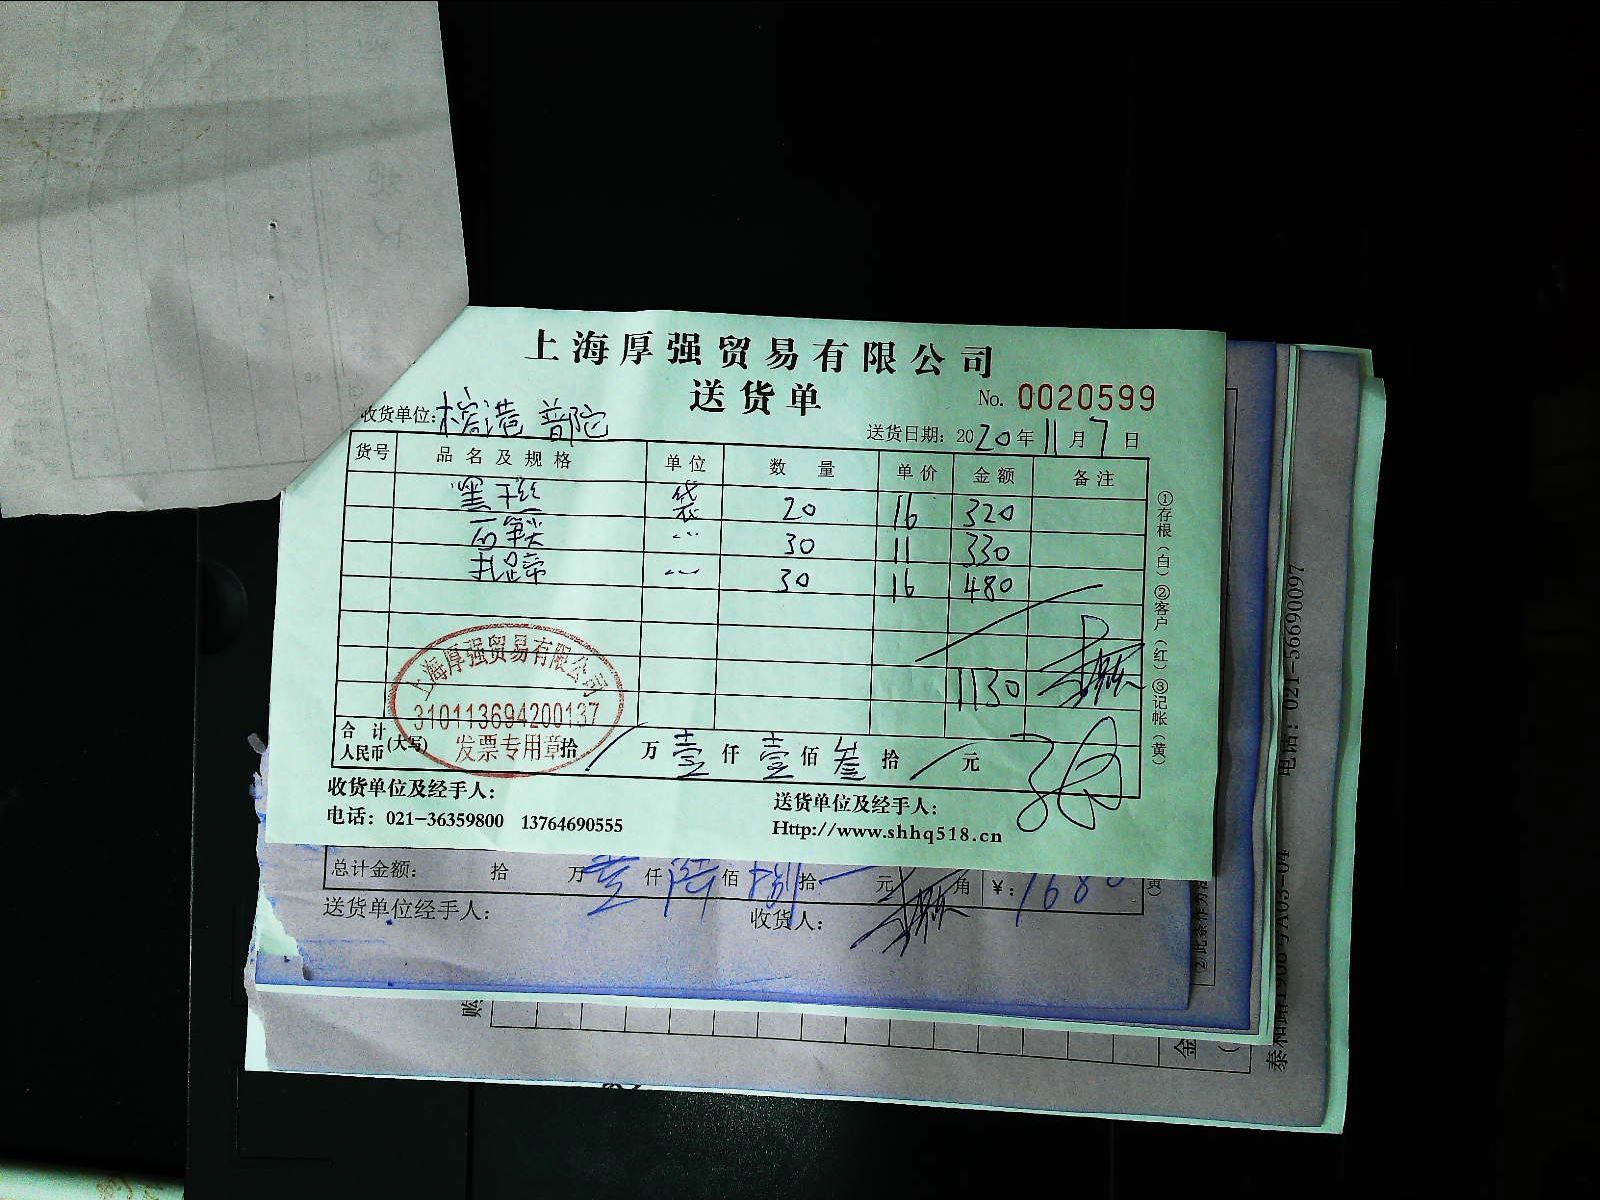 上海厚强贸易有限公司
送货单
No. 0020599
收货单位: 港 普陀
送货日期: 2020年11月7日
货号 品名及规格 单位 数量 单价 金额 备注
黑土丝 袋 20 16 320
石笋尖 〃 30 11 330
扎蹄 〃 30 16 480
1130
上海厚强贸易有限公司
310113694200137
发票专用章
合计人民币(大写) 拾 / 万 壹 仟 壹 佰 叁 拾 / 元
①存根(白)②客户(红)③记帐(黄)
收货单位及经手人:
送货单位及经手人:
电话: 021-36359800 13764690555
Http://www.shhq518.cn
总计金额: 拾 万 壹 仟 陆 佰 捌 拾 元 角 ¥: 1680
送货单位经手人:
收货人:
电话: 021-56690097